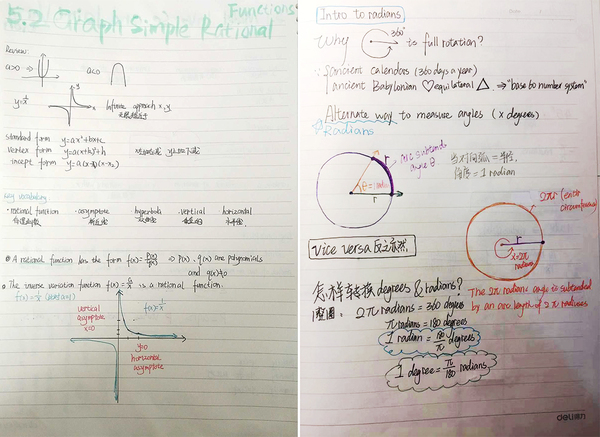 5.2 Graph Simple Rational
Functions
Review:
a>0 →
a<0
y=1/x
y
x
Infinite approach x, y
无限接近于
standard form y=ax²+bx+c
vertex form y=a(x+h)²+h
incept form y=a(x-x₁)(x-x₂)
key vocabulary
• rational function • asymptote hyperbola • vertical horizontal
有理函数 渐近线 双曲线
A rational function has the form f(x)= P(x)/q(x) ⇒ P(x), q(x) are polynomials
and q(x)≠0
The inverse variation function f(x)=a/x is a rational function.
f(x)=1/x
vertical
asymptote
x=0
f(x)=1/x
y=0
horizontal
asymptote
Intro to radians
Why 360° to full rotation?
ancient calendars (360 days a year)
ancient Babylonian ♡ equilateral △ ⇒ "base 60 number system"
Alternate way to measure angles (x degrees)
Radians
arc subtends
angle θ
r
r
θ = 1 radian
当对面弧=半径,
角度=1 radian
2πr (entire
circumference)
r
x=2π
radians
Vice versa 反之亦然
怎样转换 degrees & radians?
2π radians = 360 degrees
π radians = 180 degrees
1 radian = 180/π degrees
1 degree = π/180 radians
The 2π radians angle is subtended
by an arc length of 2π radiuses
deli 得力